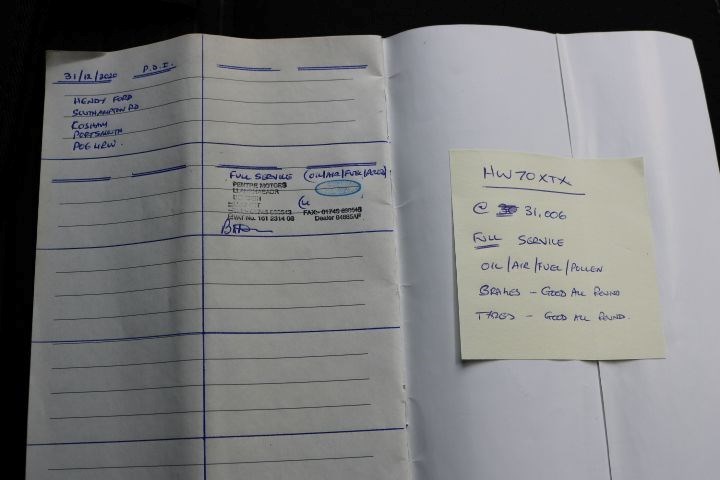 31/12/2020 P.D.I.
HENDY FORD
SOUTHAMPTON RD
COSHAM
PORTSMOUTH
FULL SERVICE (OIL/AIR/FUEL/
PENTRE MOTORS
FAX:- 01745
VAT No. 161 2314 08
Dealer
HW70XTX
@ 31,006
FULL SERVICE
OIL/AIR/FUEL/POLLEN
BRAKES - GOOD ALL ROUND
TYRES - GOOD ALL ROUND.